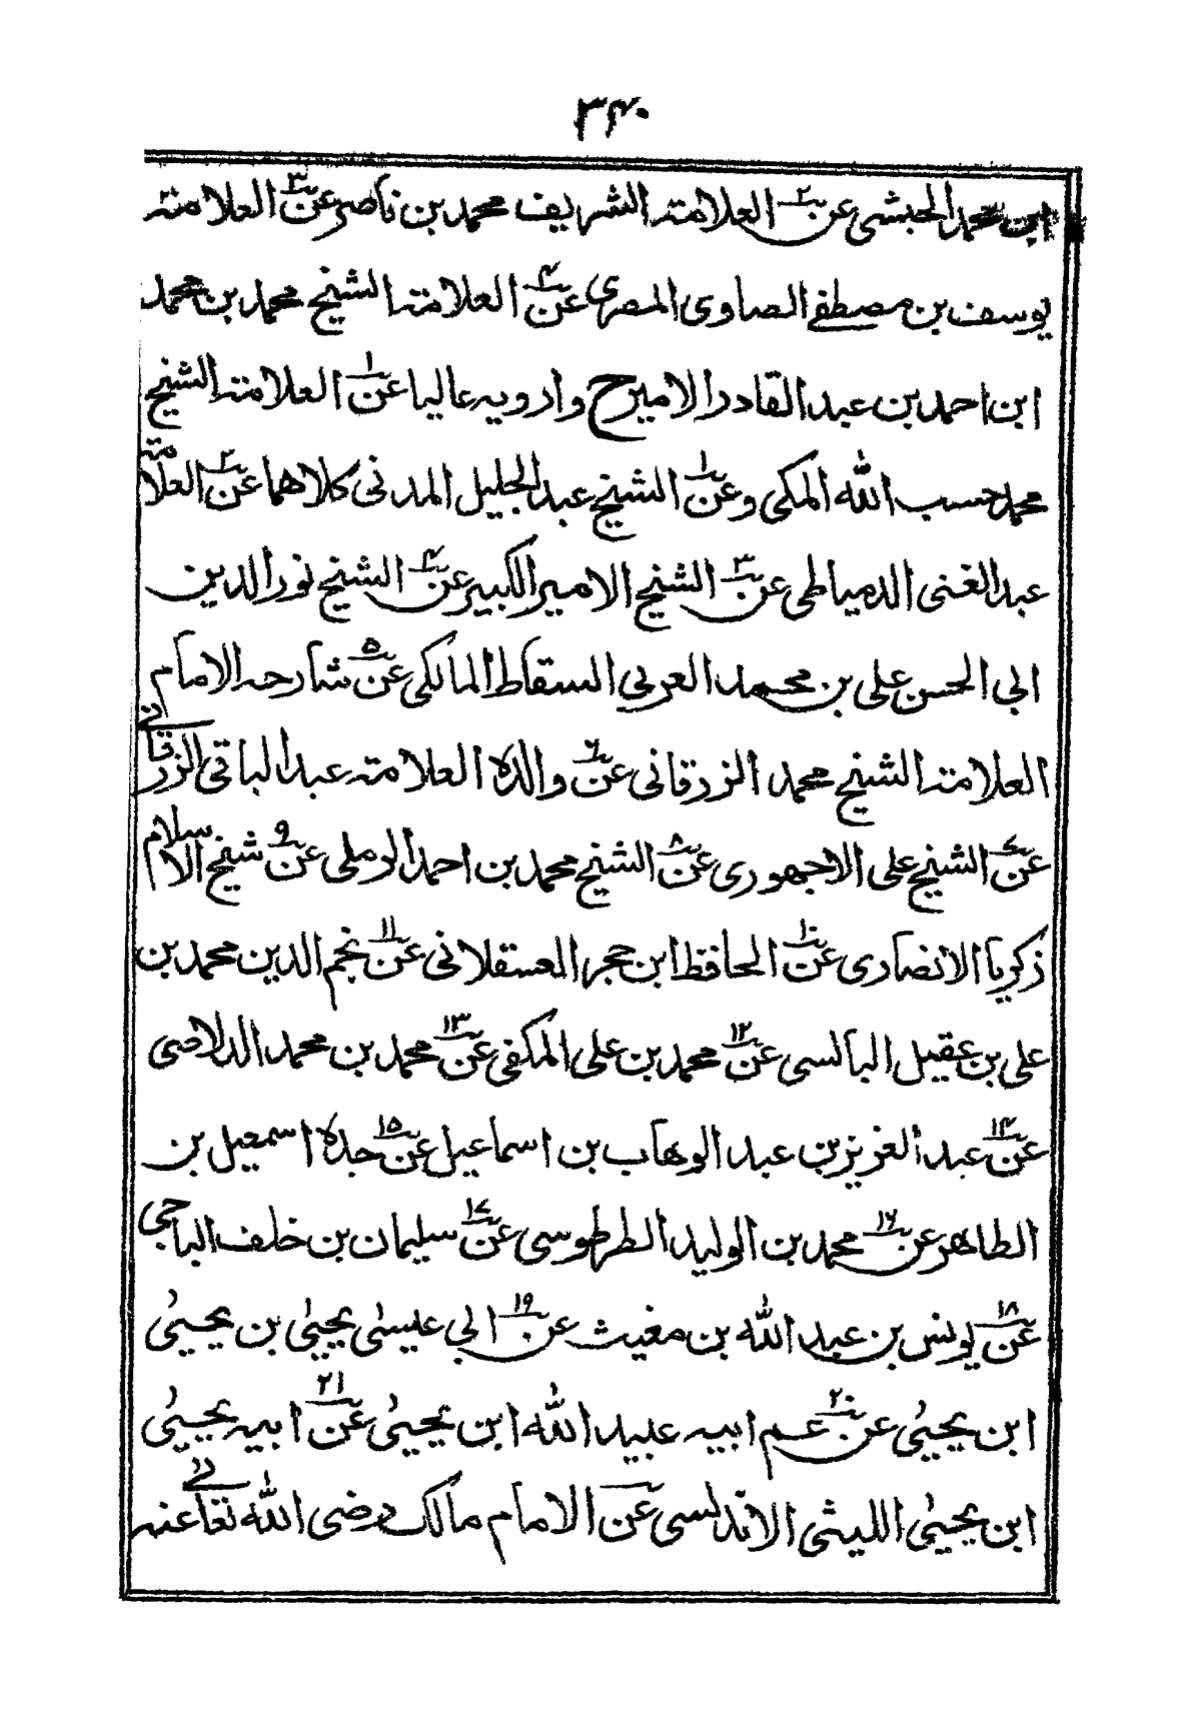 ۳۴۰
ابن محمد الحبشى عن۲ العلامته الشريف محمد بن ناصر عن۳ العلامته
يوسف بن مصطفے الصاوى المصرى عن۴ العلامته الشيخ محمد بن محمد
ابن احمد بن عبد القادر الاميرح وارويه عاليا عن۱ العلامته الشيخ
محمد حسب الله المكى وعن۱ الشيخ عبد الجليل المدنى كلاهما عن۲ العلامته
عبد الغنى الدمياطى عن۳ الشيخ الامير الكبير عن۴ الشيخ نور الدين
ابى الحسن على بن محمد العربى السقاط المالكى عن۵ شارحه الامام
العلامته الشيخ محمد الزرقانى عن۶ والده العلامته عبد الباقى الزرقانے
عن۷ الشيخ على الاجهورى عن۸ الشيخ محمد بن احمد الرملى عن۹ شيخ الاسلام
زكريا الانصارى عن۱۰ الحافظ ابن حجر العسقلانى عن۱۱ نجم الدين محمد بن
على بن عقيل البالسى عن۱۲ محمد بن على المكفى عن۱۳ محمد بن محمد الدلاصى
عن۱۴ عبد العزيز بن عبد الوهاب بن اسماعيل عن۱۵ جده اسمعيل بن
الطاهر عن۱۶ محمد بن الوليد الطرطوسى عن۱۷ سليمان بن خلف الباجى
عن۱۸ يونس بن عبد الله بن مغيث عن۱۹ ابى عيسىٰ يحيىٰ بن يحيىٰ
ابن يحيىٰ عن۲۰ عم ابيه عبيد الله ابن يحيىٰ عن۲۱ ابيه يحيىٰ
ابن يحيىٰ الليثى الاندلسى عن الامام مالك رضى الله تعالےٰ عنه